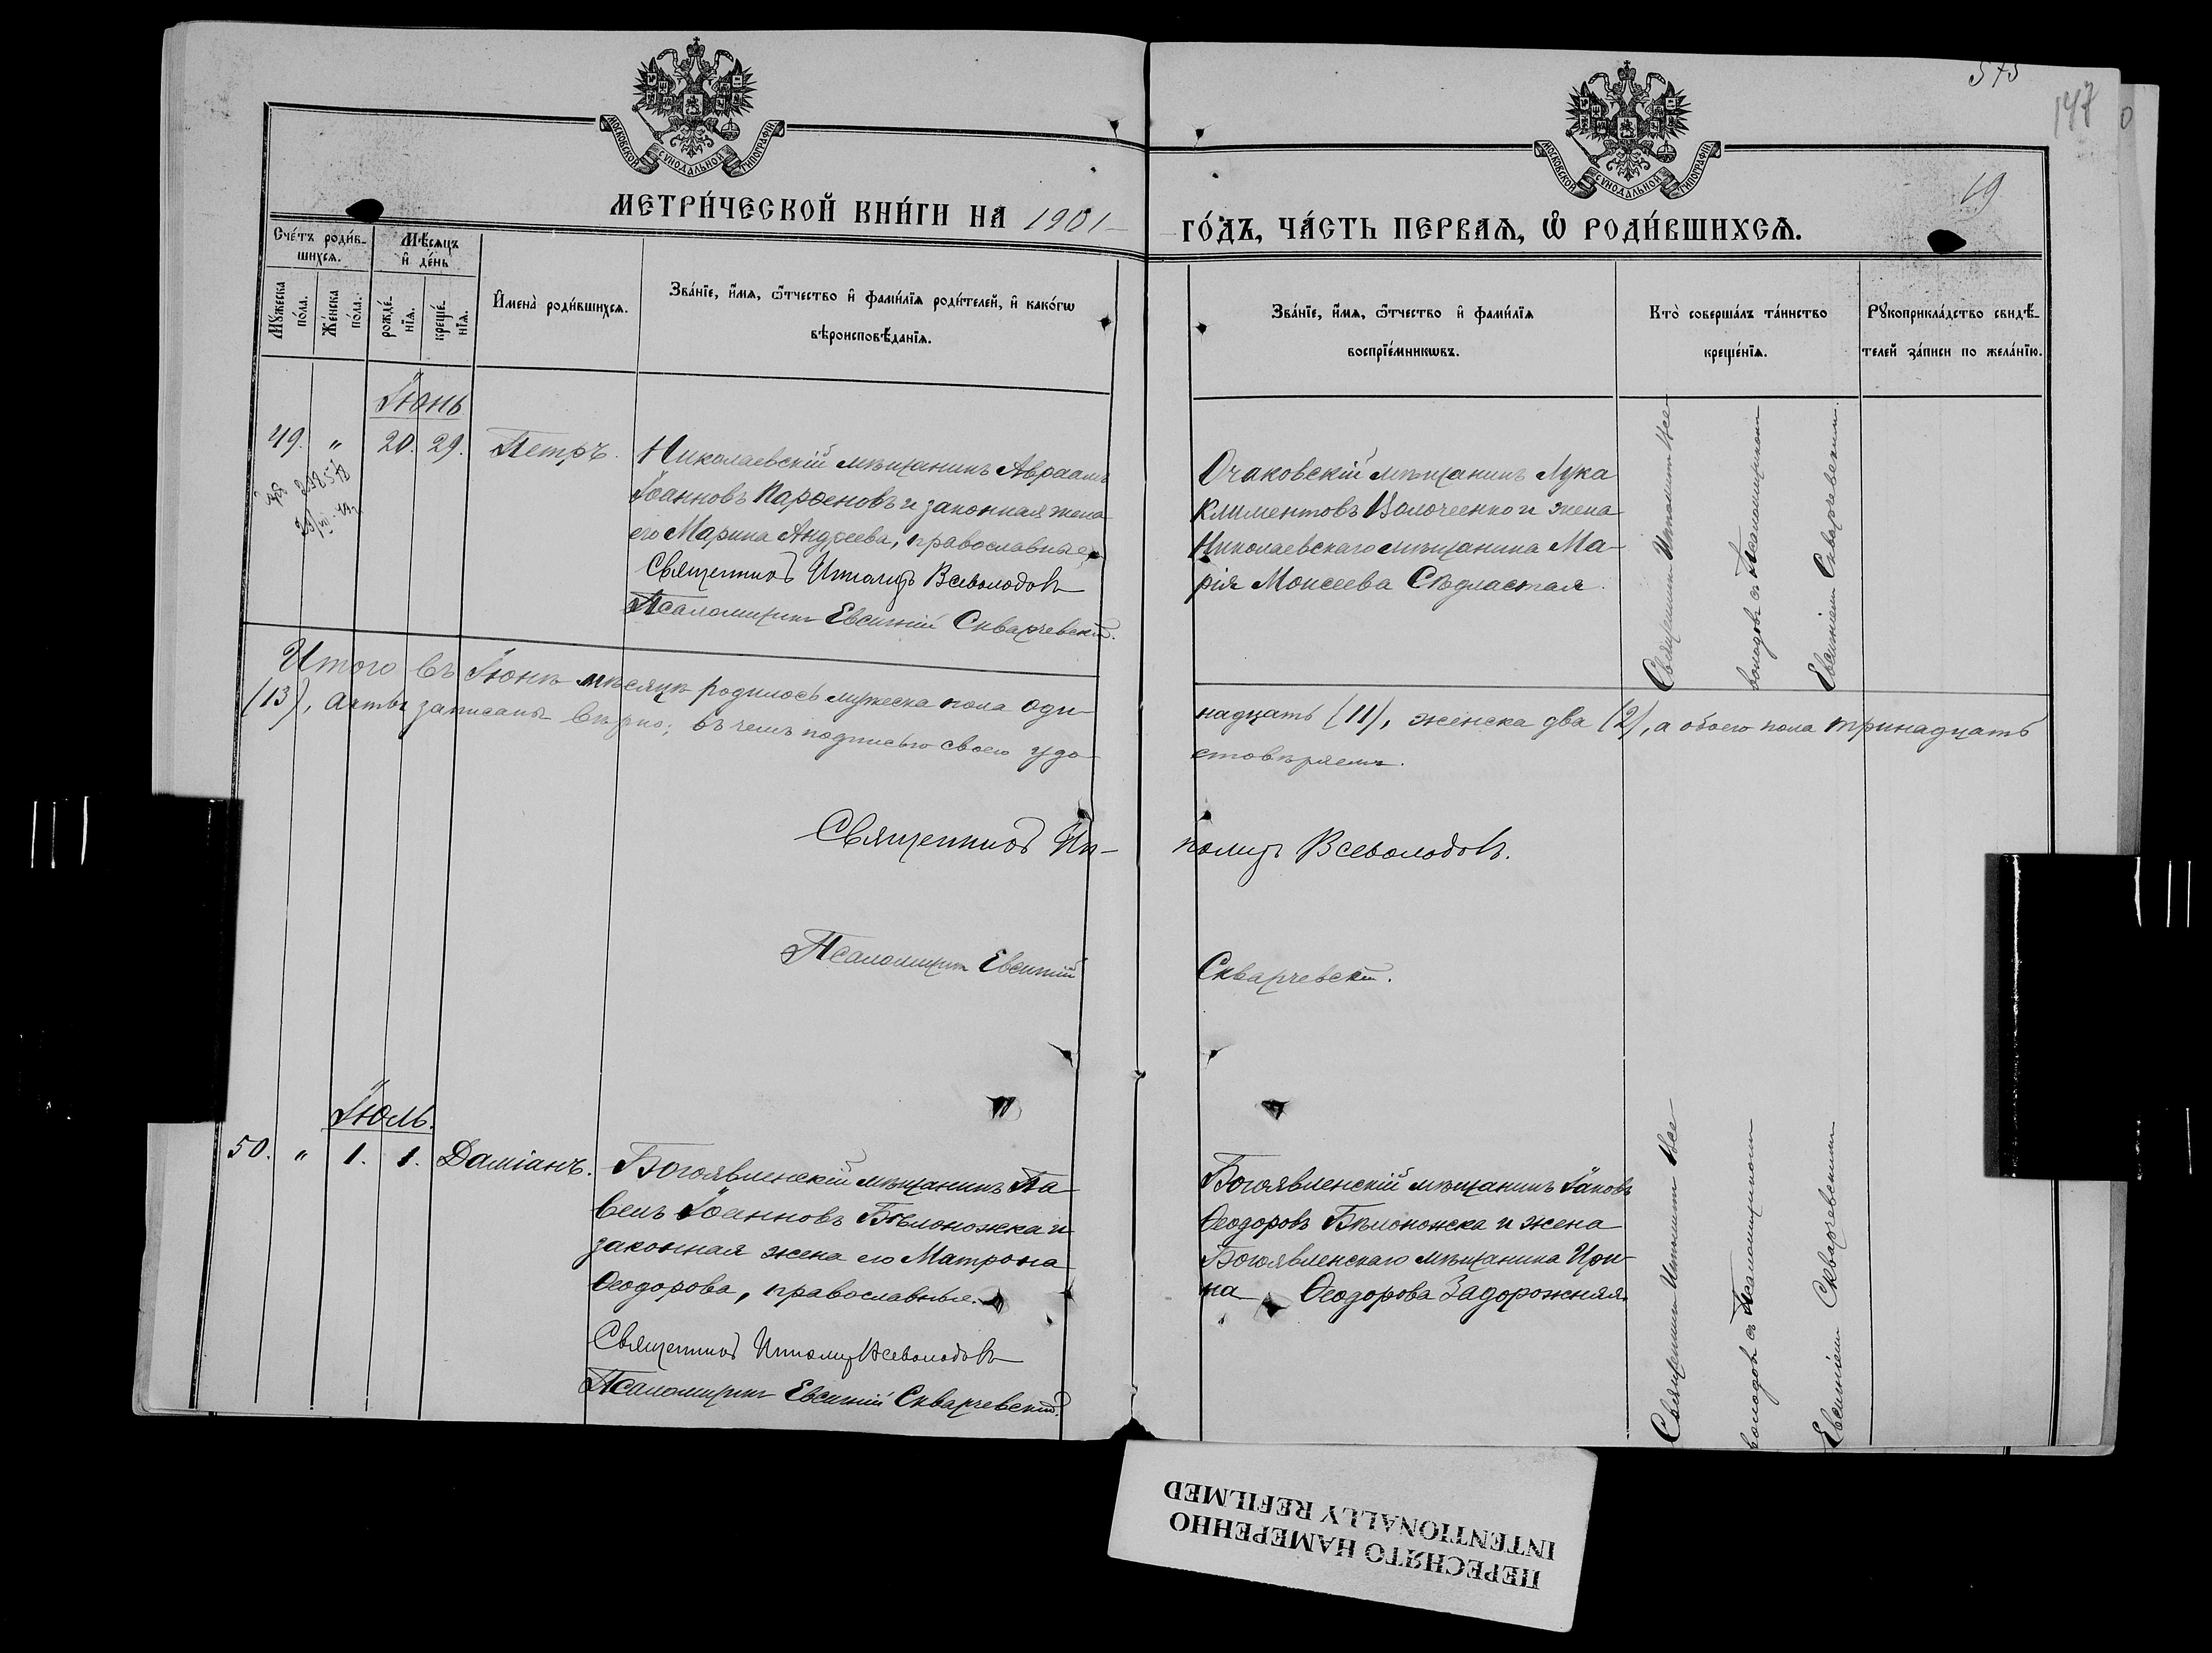 575
147
19
МОСКОВСКОЙ СѴНОДАЛЬНОЙ ТИПОГРАФІИ.
МОСКОВСКОЙ СѴНОДАЛЬНОЙ ТИПОГРАФІИ.
МЕТРИ́ЧЕСКОЙ КНИ́ГИ НА 1901
ГО́ДЪ, ЧА́СТЬ ПЕРВАѦ, Ѽ РОДИ́ВШИХСѦ.
Сче́тъ роди́в-
шихсѧ.
Мѣ́сѧцъ
и҆ де́нь
Мꙋ́жеска
по́ла.
Же́нска
по́ла.
рожде́-
нїѧ.
креще́-
нїѧ.
И҆мена̀ роди́вшихсѧ.
Зва́нїе, и҆́мѧ, ѻ҆́тчество и҆ фами́лїѧ роди́телей, и҆ како́гѡ
вѣроисповѣ́данїѧ.
Зва́нїе, и҆́мѧ, ѻ҆́тчество и҆ фами́лїѧ
воспрїе́мникѡвъ.
Кто̀ соверша́лъ та́инство
креще́нїѧ.
Рꙋкоприкла́дство свидѣ́-
телей за́писи по жела́нїю.
Іюнь
49. " 20. 29. Петръ.
Николаевскій мѣщанинъ Авраамъ
Іоанновъ Парѳеновъ и законная жена
его Марина Андреева, православные
Священникъ Ипполитъ Всеволодовъ
Псаломщикъ Евсигній Скварчевскій.
Очаковскій мѣщанинъ Лука
Климентовъ и жена
Николаевскаго мѣщанина Ма-
рія Моисеева Сѣдластая.
Священникъ Ипполитъ Все-
володовъ съ Псаломщикомъ
Евсигніемъ Скварчевскимъ.
Итого въ Іюнѣ мѣсяцѣ родилось мужеска пола оди-
надцать (11), женска два (2), а обоего пола тринадцать
(13), акты записаны вѣрно; въ чемъ подписью своею удо-
стовѣряемъ.
Священникъ Ип-
политъ Всеволодовъ.
Псаломщикъ Евсигній
Скварчевскій.
Іюль.
50. " 1. 1. Даміанъ.
Богоявленскій мѣщанинъ Па-
велъ Іоанновъ Бѣлоножка и
законная жена его Матрона
Ѳеодорова, православные.
Священникъ Ипполитъ Всеволодовъ
Псаломщикъ Евсигній Скварчевскій.
Богоявленскій мѣщанинъ Іаковъ
Ѳеодоровъ Бѣлоножка и жена
Богоявленскаго мѣщанина Ири-
на Ѳеодорова Задорожняя.
Священникъ Ипполитъ Все-
володовъ съ Псаломщикомъ
Евсигніемъ Скварчевскимъ
ПЕРЕСНЯТО НАМЕРЕННО
INTENTIONALLY REFILMED